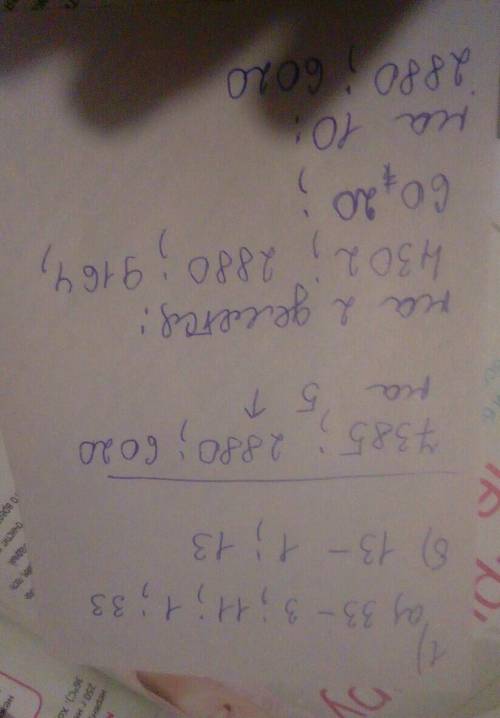 1) а) 33 - 3; 11; 1; 33
б) 13 - 1; 13
7385; 2880; 6020
на 5 ↑
на 2 делятся:
4302; 2880; 9164,
6020;
на 10:
2880; 6020